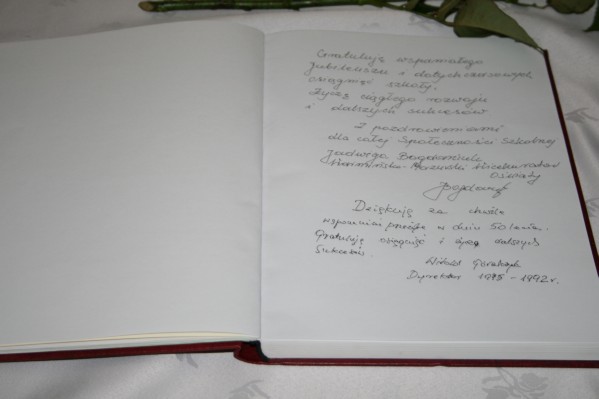 Gratuluję wspaniałego
Jubileuszu i dotychczasowych
osiągnięć szkoły.
Życzę ciągłego rozwoju
i dalszych sukcesów
Z pozdrowieniami
dla całej Społeczności Szkolnej
Jadwiga
Mazurski Wicekurator
Oświaty
Dziękuję za chwile
wspomnień przeżyte w dniu 50 lecia.
Gratuluję osiągnięć i życzę dalszych
Sukcesów.
Witold
Dyrektor 1975-1992 r.